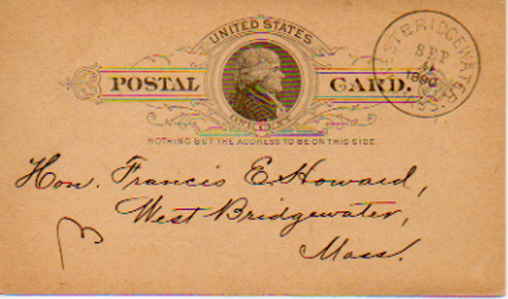 UNITED STATES
POSTAL CARD.
ONE CENT
NOTHING BUT THE ADDRESS TO BE ON THIS SIDE.
WEST BRIDGEWATER
SEP
Hon. Francis E. Howard,
West Bridgewater,
Mass.